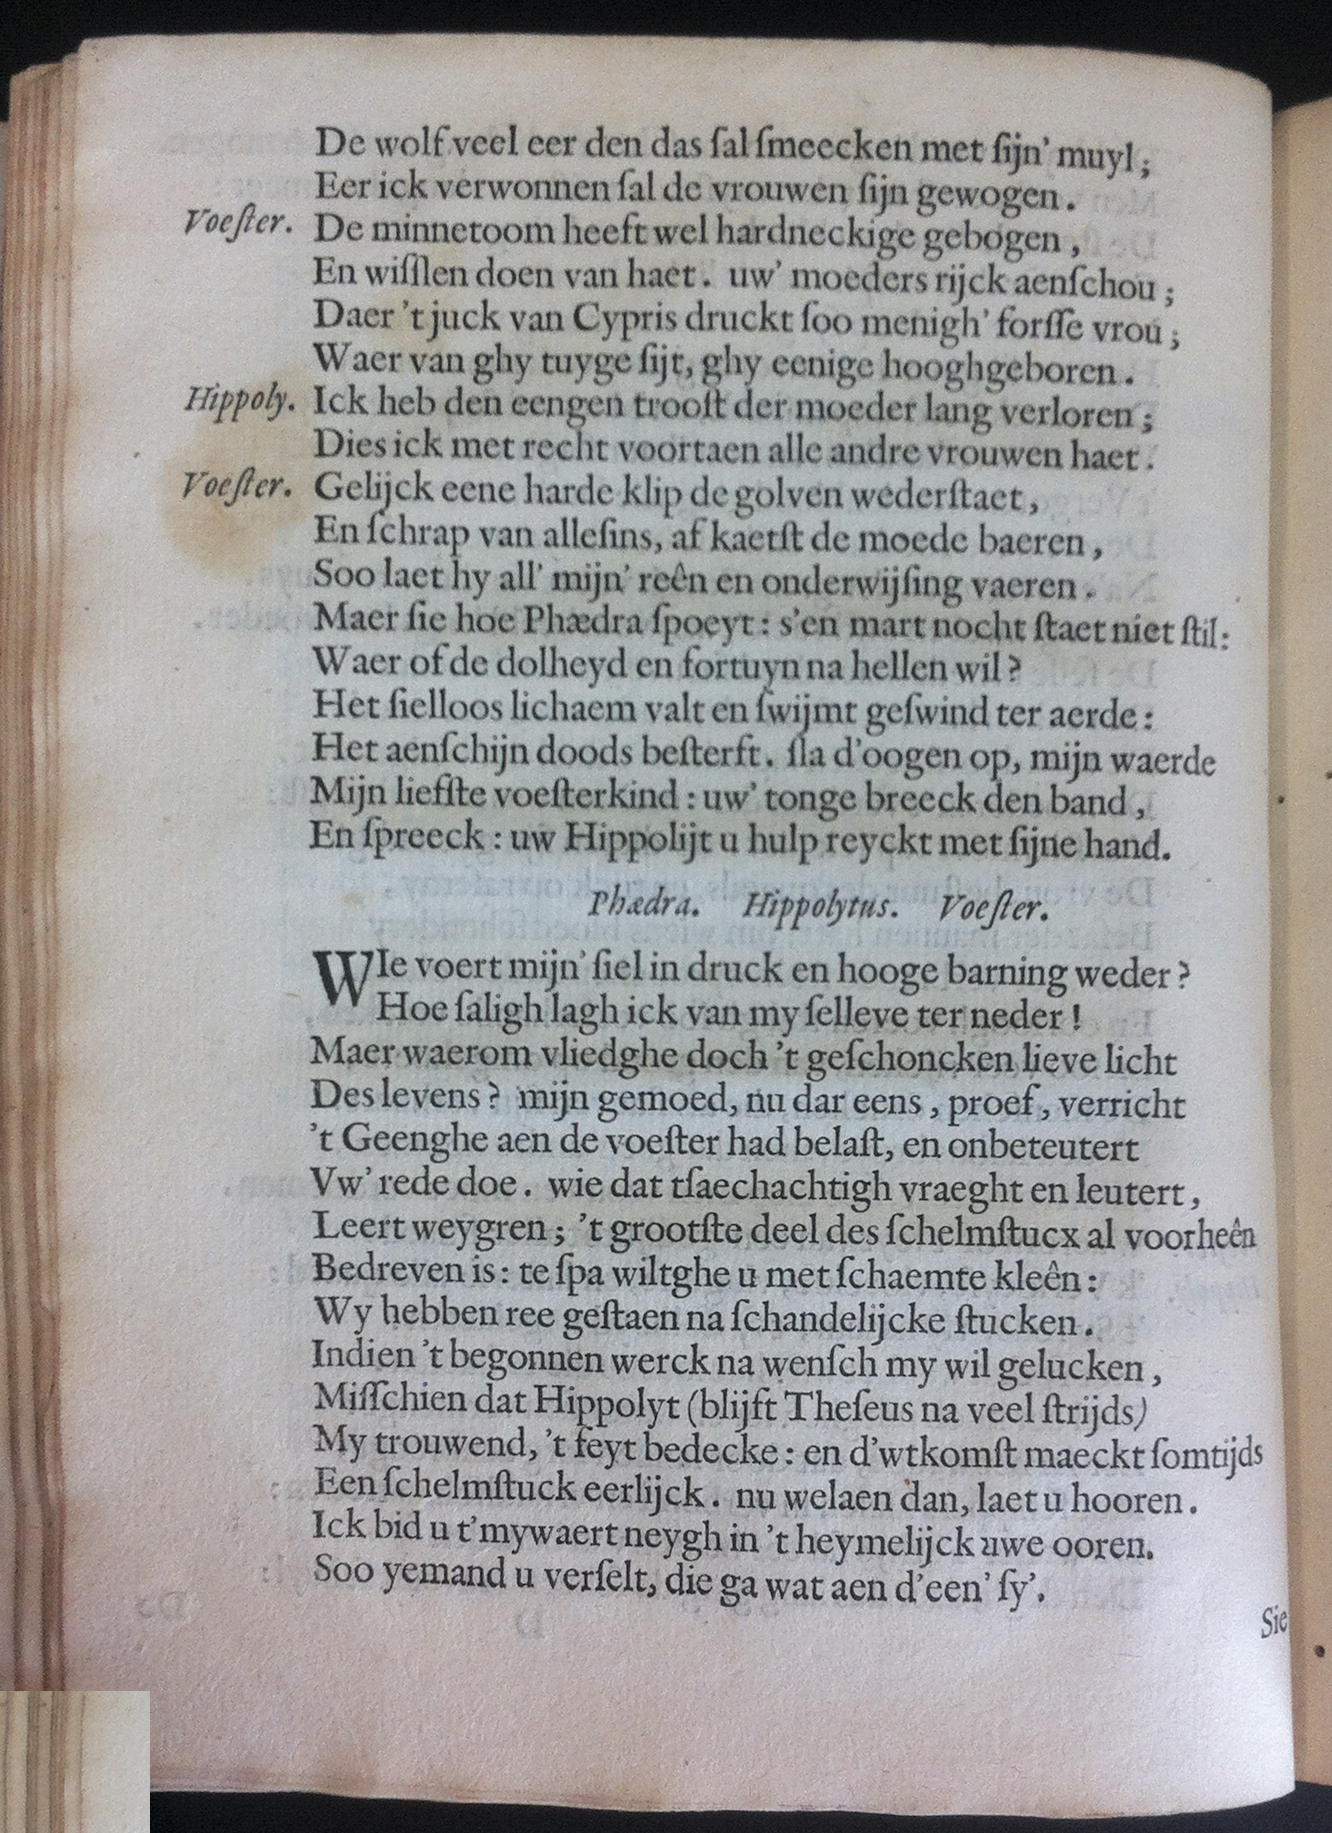 De wolf veel eer den das ſal ſmeecken met ſijn' muyl;
Eer ick verwonnen ſal de vrouwen ſijn gewogen.
Voeſter. De minnetoom heeft wel hardneckige gebogen,
En wiſſlen doen van haet. uw' moeders rijck aenſchou;
Daer 't juck van Cypris druckt ſoo menigh' forſſe vrou;
Waer van ghy tuyge ſijt, ghy eenige hooghgeboren.
Hippoly. Ick heb den eengen trooſt der moeder lang verloren;
Dies ick met recht voortaen alle andre vrouwen haet.
Voeſter. Gelijck eene harde klip de golven wederſtaet,
En ſchrap van alleſins, af kaetſt de moede baeren,
Soo laet hy all' mijn' reên en onderwijſing vaeren.
Maer ſie hoe Phædra ſpoeyt: s'en mart nocht ſtaet niet ſtil:
Waer of de dolheyd en fortuyn na hellen wil?
Het ſielloos lichaem valt en ſwijmt geſwind ter aerde:
Het aenſchijn doods beſterft. ſla d'oogen op, mijn waerde
Mijn liefſte voeſterkind: uw' tonge breeck den band,
En ſpreeck: uw Hippolijt u hulp reyckt met ſijne hand.
Phædra. Hippolytus. Voeſter.
WIe voert mijn' ſiel in druck en hooge barning weder?
Hoe ſaligh lagh ick van my ſelleve ter neder!
Maer waerom vliedghe doch 't geſchoncken lieve licht
Des levens? mijn gemoed, nu dar eens, proef, verricht
't Geenghe aen de voeſter had belaſt, en onbeteutert
Vw' rede doe. wie dat tſaechachtigh vraeght en leutert,
Leert weygren; 't grootſte deel des ſchelmſtucx al voorheên
Bedreven is: te ſpa wiltghe u met ſchaemte kleên:
Wy hebben ree geſtaen na ſchandelijcke ſtucken.
Indien 't begonnen werck na wenſch my wil gelucken,
Miſſchien dat Hippolyt (blijft Theſeus na veel ſtrijds)
My trouwend, 't feyt bedecke: en d'wtkomſt maeckt ſomtijds
Een ſchelmſtuck eerlijck. nu welaen dan, laet u hooren.
Ick bid u t'mywaert neygh in 't heymelijck uwe ooren.
Soo yemand u verſelt, die ga wat aen d'een' ſy'.
Sie